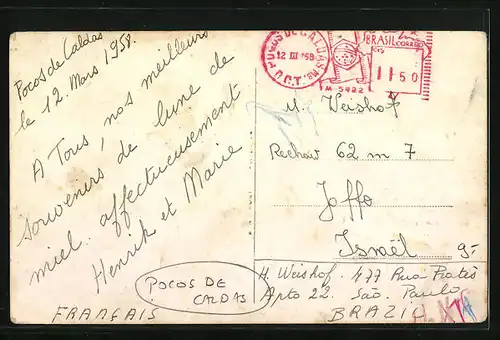 Pocos de Caldas
le 12. Mars 1958.
A Tous, nos meilleurs
souvenirs de lune de
miel. affectueusement
Henrik et Marie
POCOS DE
CALDAS
FRANÇAIS
POÇOS DE CALDAS
12 III 58
D.C.T.
BRASIL CORREIO
1150
M 5922
M. Weishof
Rechov 62 m 7
Joffo
Israël
H. Weishof. 477 Rua Prates
Apto 22. São. Paulo
BRAZIL